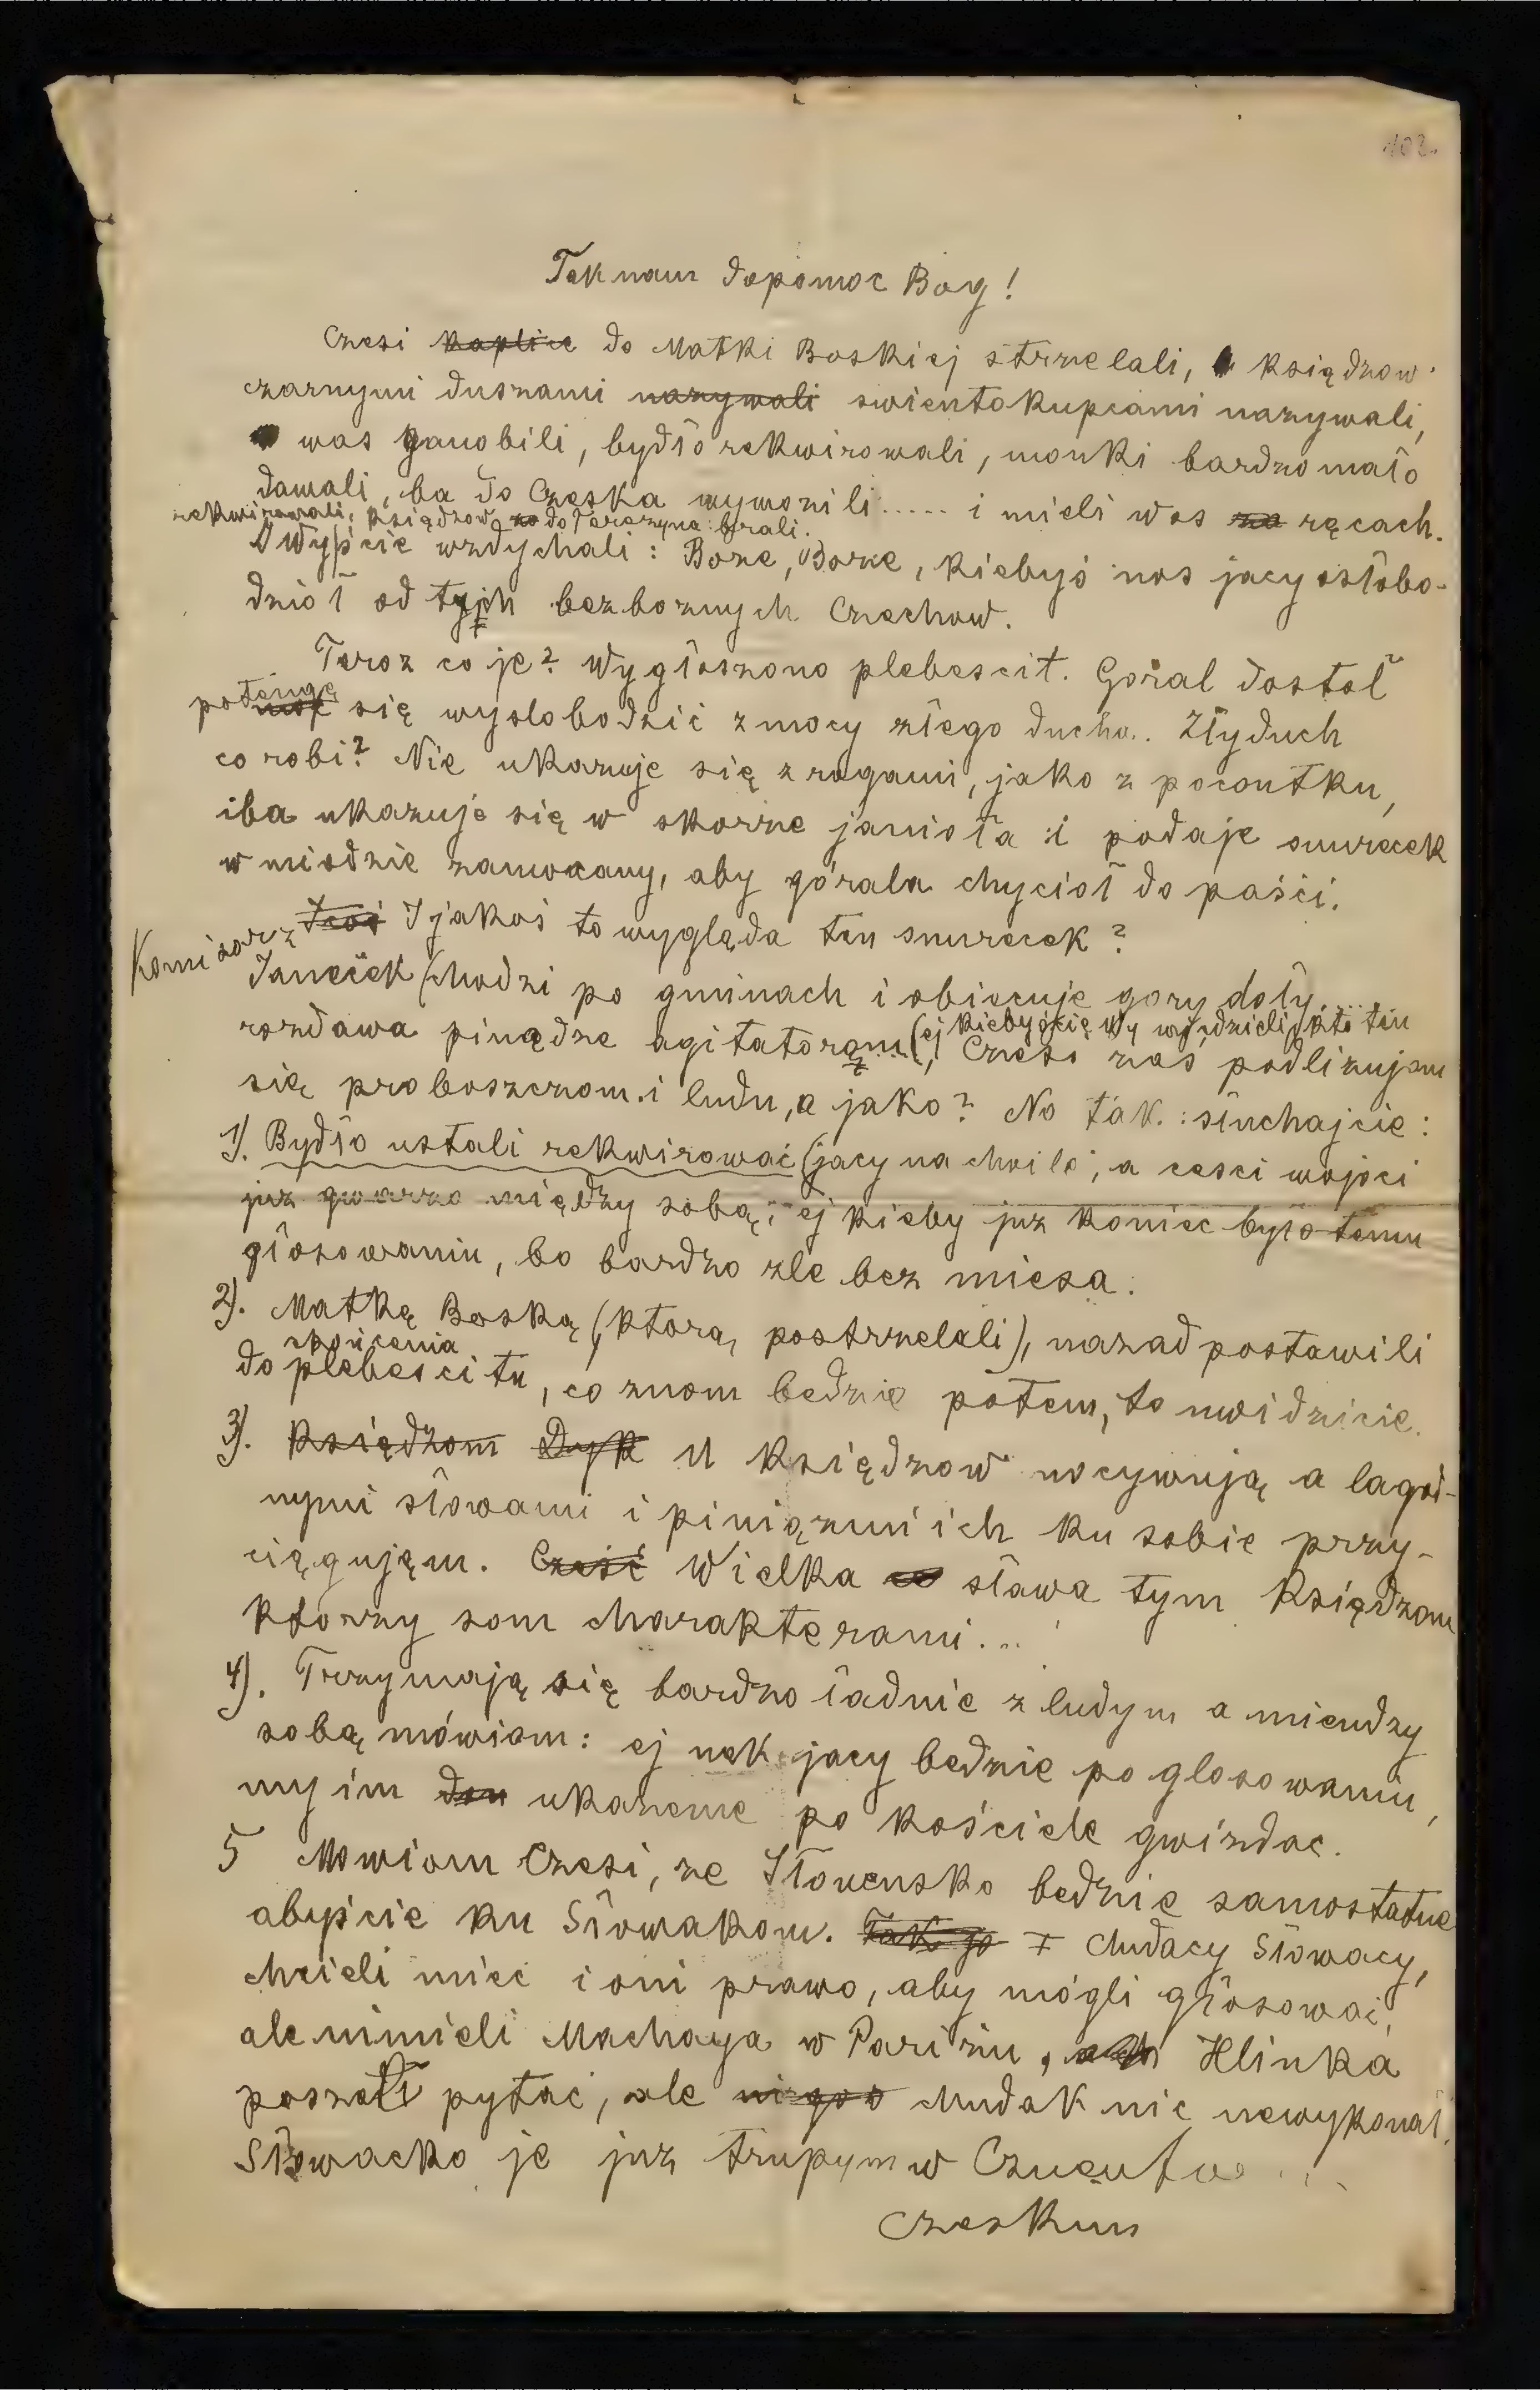 102.
Tak nam dopomoc Bog!
Czesi kaplice do Matki Boskiej strzelali, księdzow
czarnymi dusznami nazywali swientokupcami nazywali,
was ganobili, bydło rekwirowali, monki bardzo mało
dawali, ba do Czeska wywozili ..... i mieli was za ręcach.
rekwirowali, księdzow do Terezyna brali.
A wyście wzdychali: Boze, Boze, kiebyś nos jacy osłobo-
dziół od tych bezboznych Czechow.
Teroz co je? Wygłoszono plebescit. Goral dostoł
potengę moc się wyslobodzić z mocy złego ducha. Zły duch
co robi? Nie ukazuje się z rogami, jako z pocontku,
iba ukazuje się w skorze janioła i podaje snurecek
w miodzie zamocany, aby górala chycioł do paści.
I jakoś to wygląda ten snurecek?
Komisorz Janeček chodzi po gminach i obiecuje gory doły....
(ej kiebyście wy wiedzieli kto ten
rozdawa piniądze agitatorom, Czesi zaś podlizujom
się proboszczom i ludu, a jako? No tak: słuchajcie:
1). Bydło ustali rekwirować (jacy na chvilo, a cesci wojoci
juz gwarzo między sobą, ej kieby juz koniec było temu
głosowaniu, bo bardzo zle bez miesa.
2). Matkę Boską (ktorą postrzelali), nazad postawili
do skońcenia plebescitu, co znom bedzie potem, to uwidzicie.
3). Księdzom Dyk U księdzow nocywują a lagod-
nymi słowami i piniązmi ich ku sobie przy-
ciągujęm. Cześć Wielka sława tym Księdzom
ktorzy som charakterami...
4). Trzymają się bardzo ładnie z ludym a miendzy
sobą mówiom: ej nek jacy bedzie po glosowaniu,
my im ukazeme po kościele gwizdac.
5 Mowiom Czesi, ze Słowensko bedzie samostatne
abyście ku Słowakom. Tak jo I chudacy Słowacy,
chcieli miec i oni prawo, aby mógli głosować,
ale nimieli Machaya w Parizu, Hlinka
poszeł pytać, ale chudak nic newykonał.
Słowacko je juz trupym w
czeskim